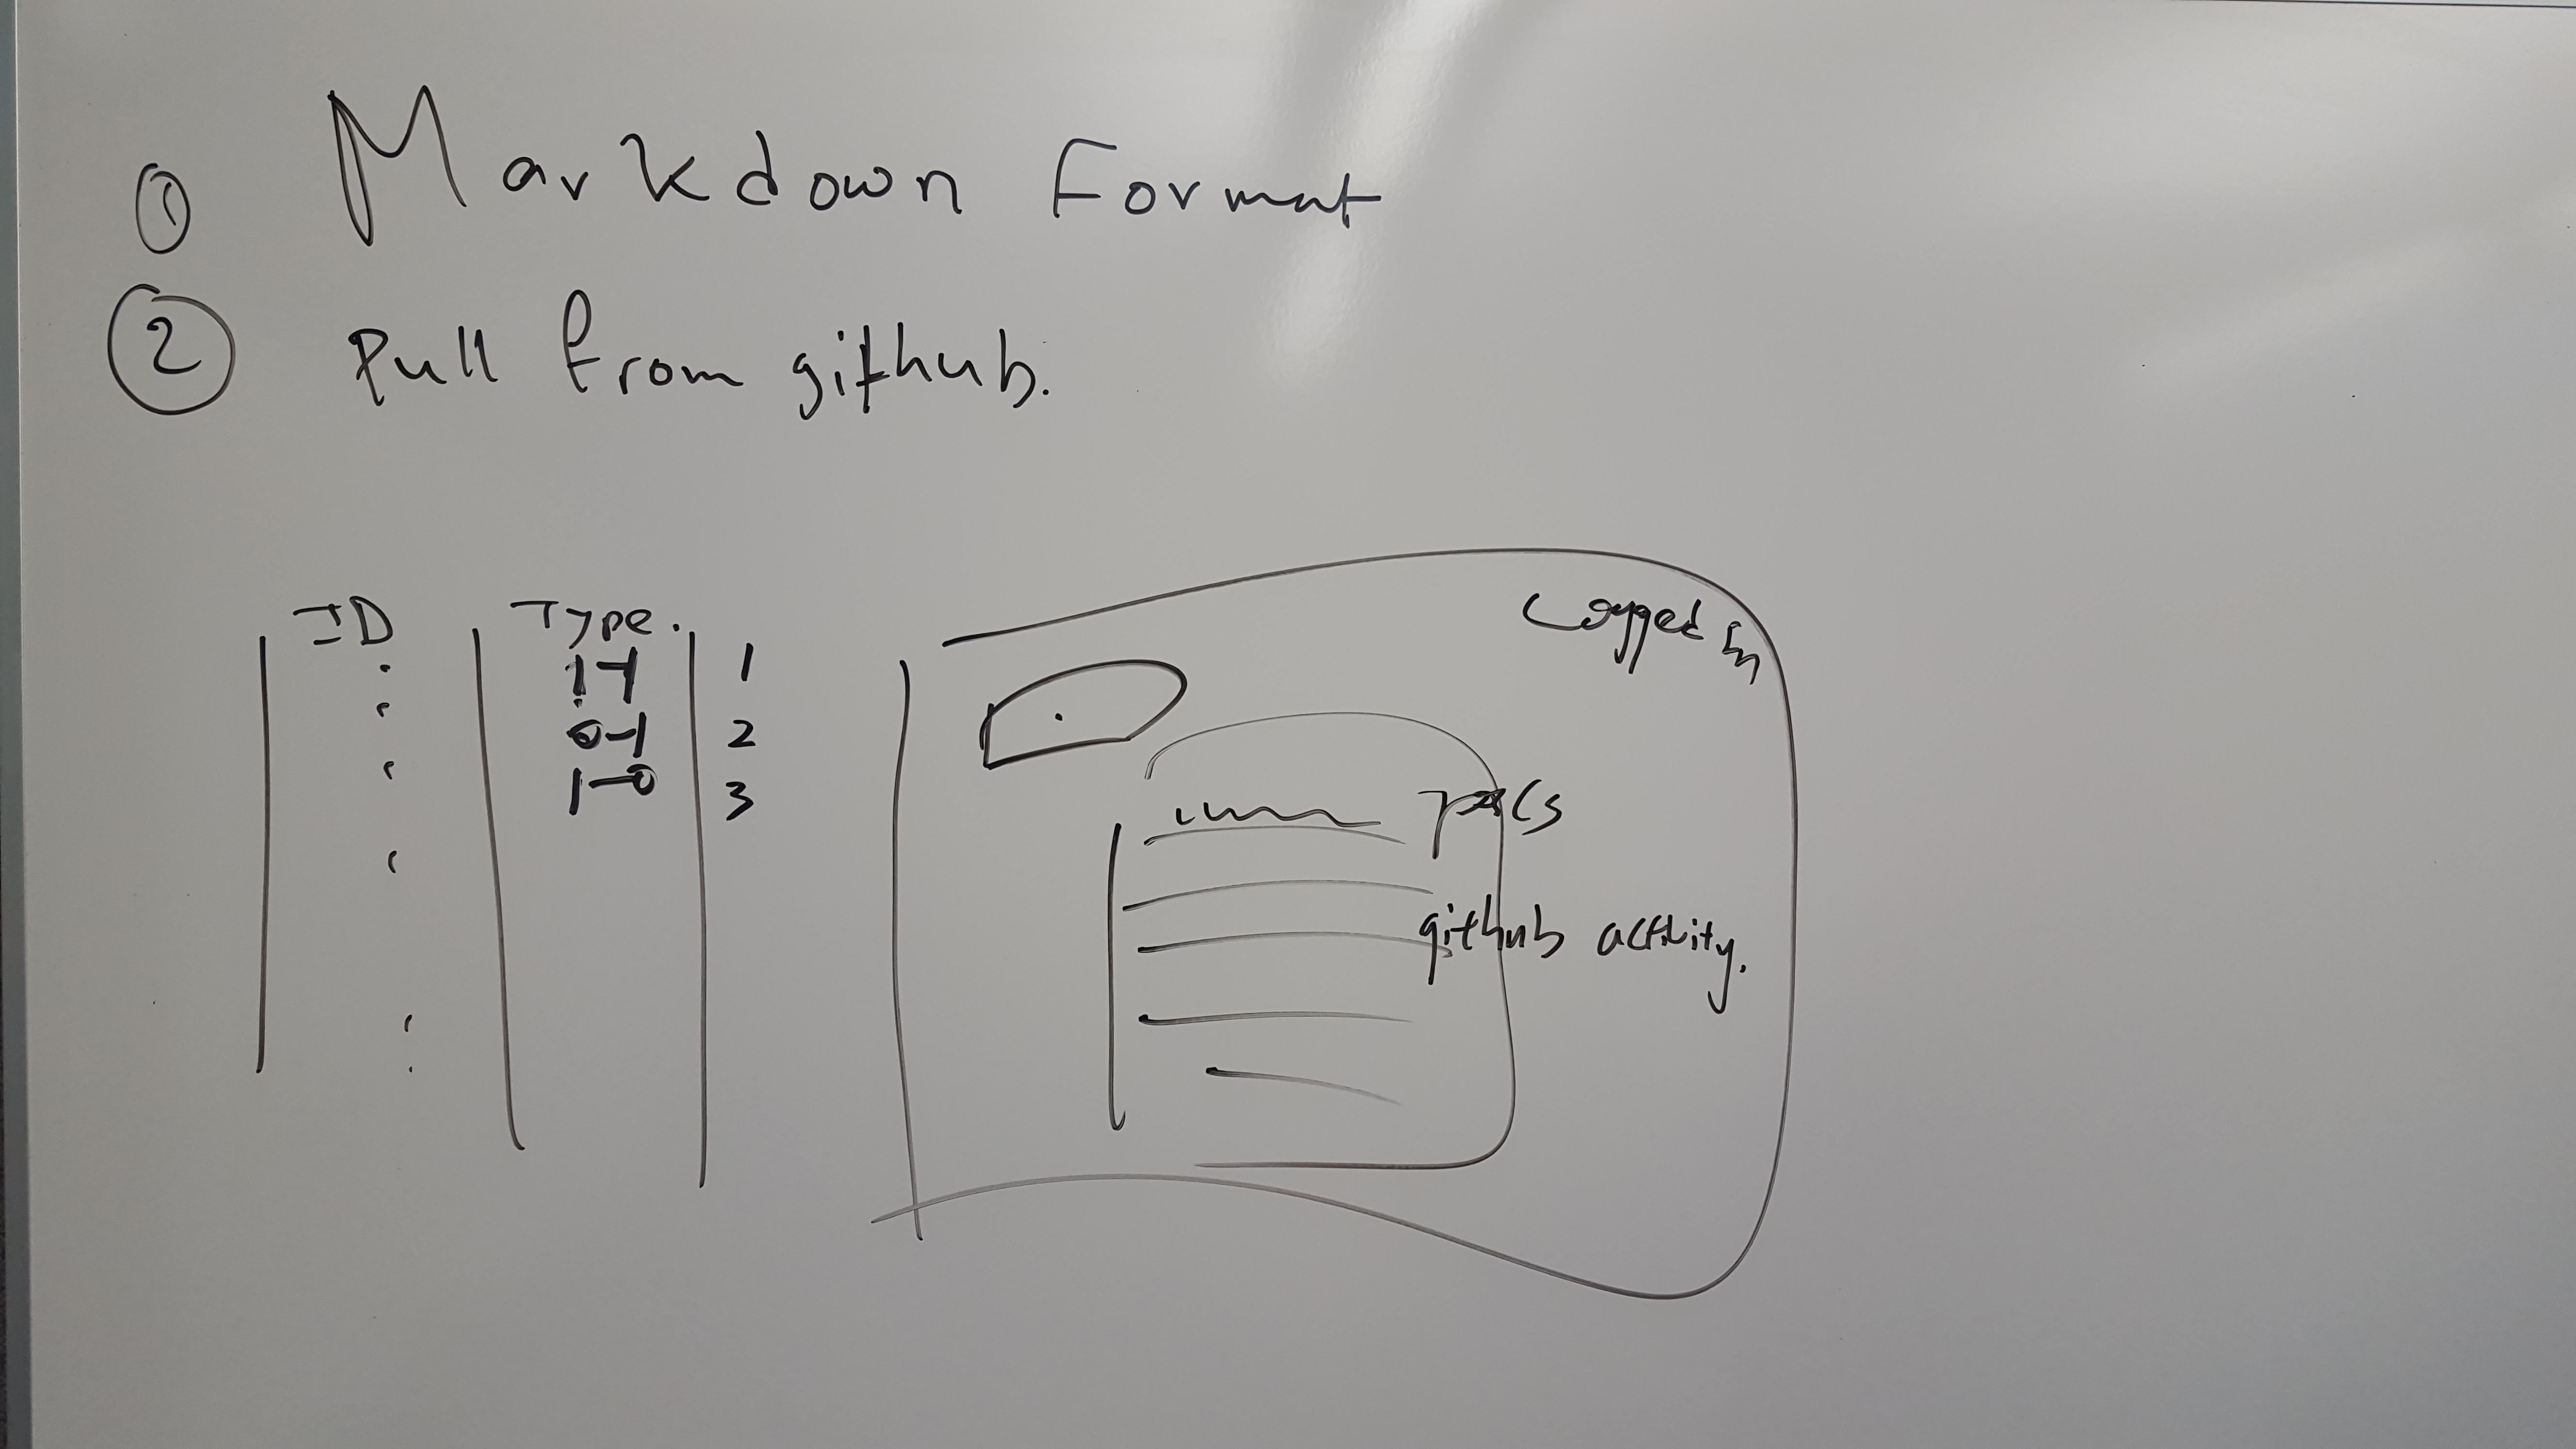 ① Markdown Format
② Pull from github.
ID Type.
1-1 1
0-1 2
1-0 3
Logged In
github activity.